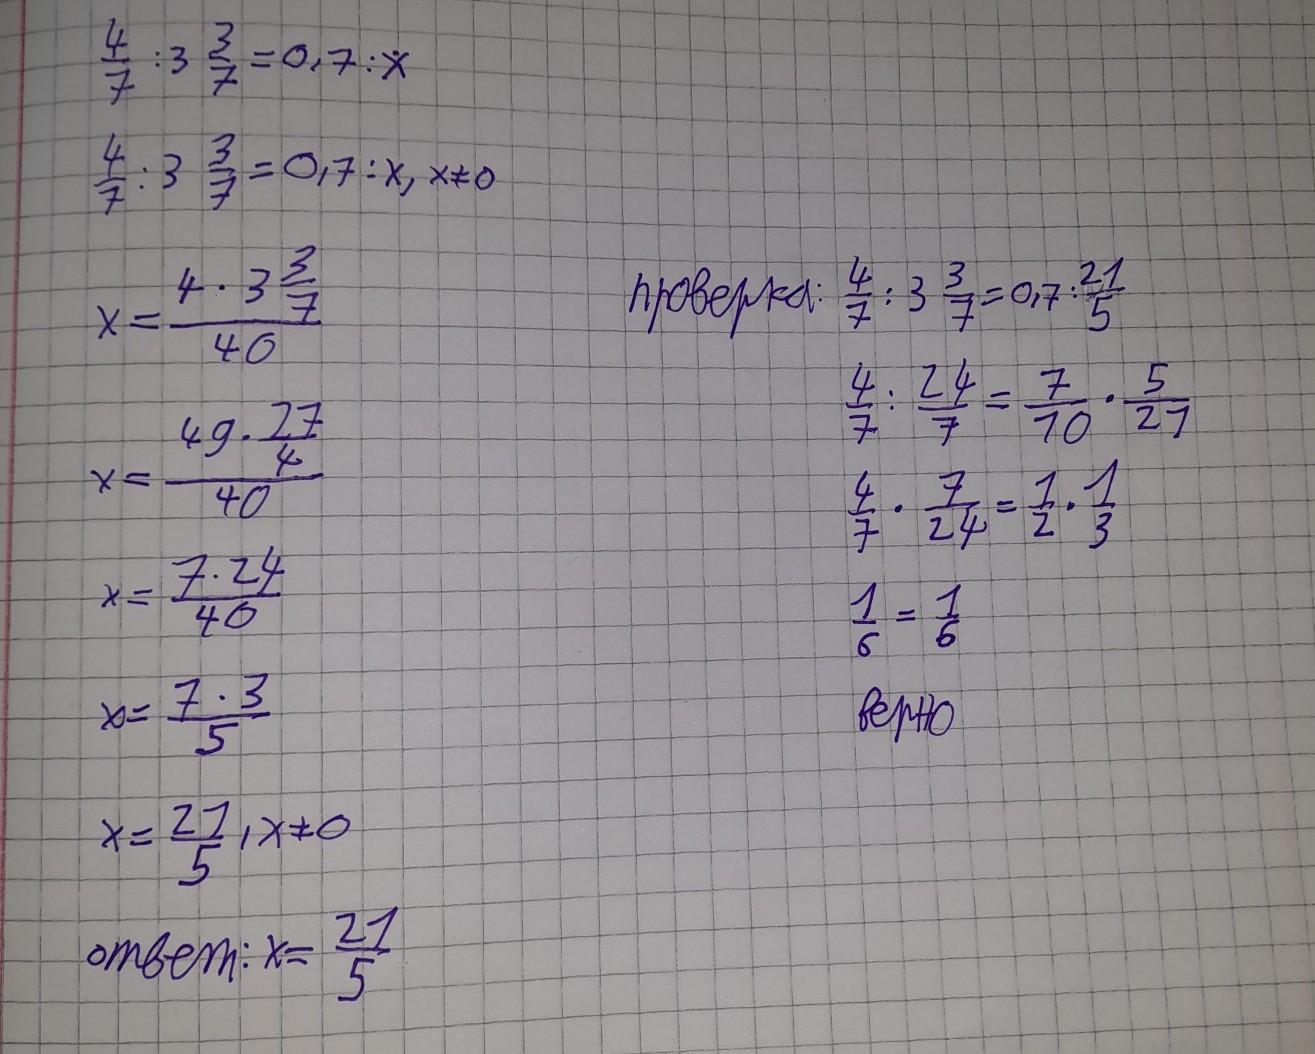 4/7 : 3 3/7 = 0,7 : x
4/7 : 3 3/7 = 0,7 : x, x≠0
x = (4 · 3 3/7)/40
x = (49 · 27/4)/40
x = (7 · 24)/40
x = (7 · 3)/5
x = 21/5, x≠0
ответ: x = 21/5
проверка: 4/7 : 3 3/7 = 0,7 : 21/5
4/7 : 24/7 = 7/10 · 5/21
4/7 · 7/24 = 1/2 · 1/3
1/6 = 1/6
верно